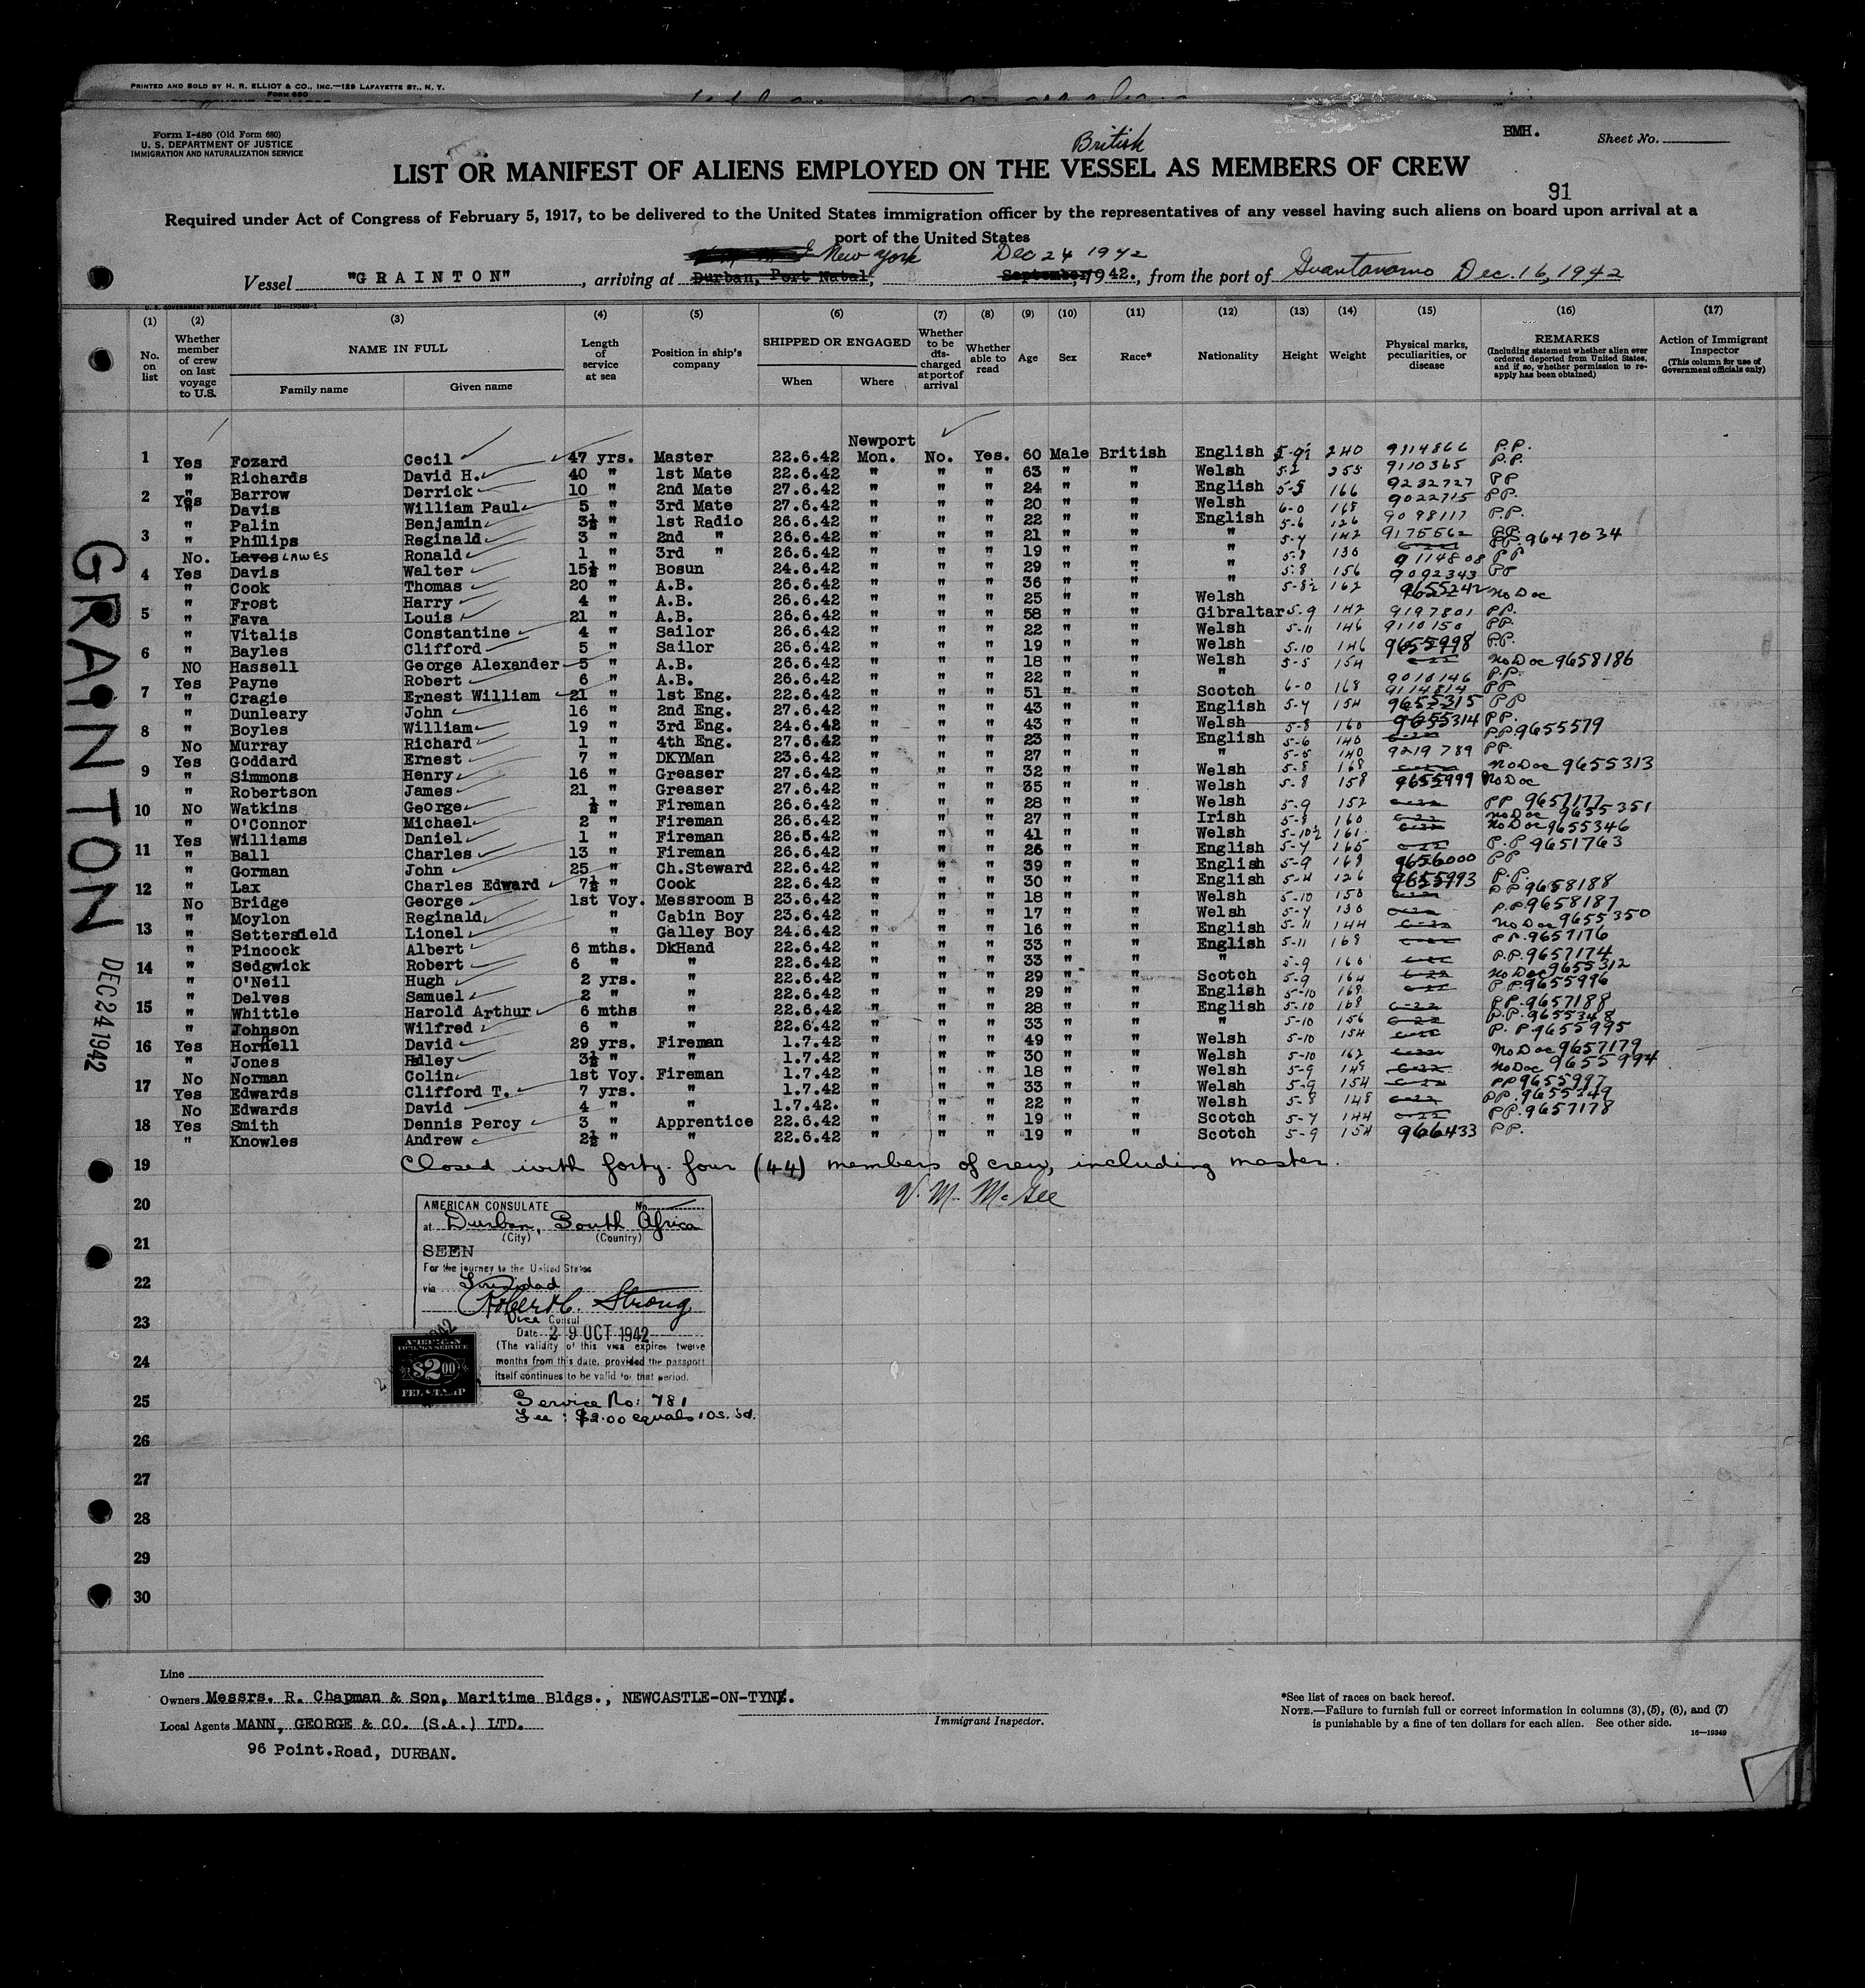 PRINTED AND SOLD BY H. R. ELLIOT & CO., INC.—129 LAFAYETTE ST., N. Y.
FORM 680
Form I-480 (Old Form 680)
U. S. DEPARTMENT OF JUSTICE
IMMIGRATION AND NATURALIZATION SERVICE
British
BMH.
Sheet No.
LIST OR MANIFEST OF ALIENS EMPLOYED ON THE VESSEL AS MEMBERS OF CREW
91
Required under Act of Congress of February 5, 1917, to be delivered to the United States immigration officer by the representatives of any vessel having such aliens on board upon arrival at a
port of the United States
New York Dec 24 1942
Vessel "GRAINTON", arriving at Durban, Port Natal, September, 1942., from the port of Guantanamo Dec. 16, 1942
U. S. GOVERNMENT PRINTING OFFICE 16—19349-1
(1) (2) (3) (4) (5) (6) (7) (8) (9) (10) (11) (12) (13) (14) (15) (16) (17)
No. on list
Whether member of crew on last voyage to U.S.
NAME IN FULL
Family name
Given name
Length of service at sea
Position in ship's company
SHIPPED OR ENGAGED
When
Where
Whether to be discharged at port of arrival
Whether able to read
Age
Sex
Race*
Nationality
Height
Weight
Physical marks, peculiarities, or disease
REMARKS
(Including statement whether alien ever ordered deported from United States, and if so, whether permission to reapply has been obtained)
Action of Immigrant Inspector
(This column for use of Government officials only)
Newport
1 Yes Fozard Cecil 47 yrs. Master 22.6.42 Mon. No. Yes. 60 Male British English 240 9114866 P.P.
" Richards David H. 40 " 1st Mate 22.6.42 " " " 63 " " Welsh 5-2 255 9110365 P.P.
2 " Barrow Derrick 10 " 2nd Mate 27.6.42 " " " 24 " " English 5-5 166 9232727 PP
Yes " Davis William Paul 5 " 3rd Mate 27.6.42 " " " 20 " " Welsh 6-0 168 9022715 PP.
" Palin Benjamin 3½ " 1st Radio 26.6.42 " " " 22 " " English 5-6 126 9098117 P.P.
3 " Phillips Reginald 3 " 2nd " 26.6.42 " " " 21 " " " 5-4 142 9175562 PP.
No. Laves LAWES Ronald 1 " 3rd " 26.6.42 " " " 19 " " " 5-8 130 PP. 9647034
4 Yes Davis Walter 15½ " Bosun 24.6.42 " " " 29 " " " 5-8 156 9114808 PP
" Cook Thomas 20 " A.B. 26.6.42 " " " 36 " " " 5-8½ 162 9092343 PP
" Frost Harry 4 " A.B. 26.6.42 " " " 25 " " Welsh 9655242 No Doc
5 " Fava Louis 21 " A.B. 26.6.42 " " " 58 " " Gibraltar 5-9 142 9197801 PP.
" Vitalis Constantine 4 " Sailor 26.6.42 " " " 22 " " Welsh 5-11 146 9110150 PP.
6 " Bayles Clifford 5 " Sailor 26.6.42 " " " 19 " " Welsh 5-10 146 9655998 PP.
NO Hassell George Alexander 5 " A.B. 26.6.42 " " " 18 " " Welsh 5-5 154 No Doc 9658186
7 Yes Payne Robert 6 " A.B. 26.6.42 " " " 22 " " " 9010146 P.P.
" Cragie Ernest William 21 " 1st Eng. 22.6.42 " " " 51 " " Scotch 6-0 168 9114814 PP
" Dunleary John 16 " 2nd Eng. 27.6.42 " " " 43 " " English 5-4 154 9655315 PP
8 " Boyles William 19 " 3rd Eng. 24.6.42 " " " 43 " " Welsh 5-8 160 9655314 PP.
No Murray Richard 1 " 4th Eng. 27.6.42 " " " 23 " " English 5-6 140 PP 9655579
Yes Goddard Ernest 7 " DKYMan 23.6.42 " " " 27 " " " 5-5 140 9219789 PP.
9 " Simmons Henry 16 " Greaser 27.6.42 " " " 32 " " Welsh 5-8 168 No Doc 9655313
" Robertson James 21 " Greaser 27.6.42 " " " 35 " " Welsh 5-8 158 9655999 No Doc
10 No Watkins George ½ " Fireman 26.6.42 " " " 28 " " Welsh 5-9 152 PP 9657177
" O'Connor Michael 2 " Fireman 26.6.42 " " " 27 " " Irish 5-8 160 No Doc 9655351
Yes Williams Daniel 1 " Fireman 26.6.42 " " " 41 " " Welsh 5-10½ 161 No Doc 9655346
11 " Ball Charles 13 " Fireman 26.6.42 " " " 26 " " English 5-4 165 P.P 9651763
" Gorman John 25 " Ch.Steward 22.6.42 " " " 39 " " English 5-9 168 9656000 PP
12 " Lax Charles Edward 7½ " Cook 22.6.42 " " " 30 " " English 5-4 126 9655993 P.P.
No Bridge George 1st Voy. Messroom B 23.6.42 " " " 18 " " Welsh 5-10 150 PP 9658188
" Moylon Reginald " Cabin Boy 23.6.42 " " " 17 " " Welsh 5-4 130 P.P 9658187
13 " Settersfield Lionel " Galley Boy 24.6.42 " " " 16 " " English 5-11 144 No Doc 9655350
" Pincock Albert 6 mths. DkHand 22.6.42 " " " 33 " " English 5-11 168 PP. 9657176
14 " Sedgwick Robert 6 " " 22.6.42 " " " 33 " " " 5-9 160 P.P. 9657174
" O'Neil Hugh 2 yrs. " 22.6.42 " " " 29 " " Scotch 5-9 164 No Doc 9655312
" Delves Samuel 2 " " 22.6.42 " " " 29 " " English 5-10 168 PP 9655996
15 " Whittle Harold Arthur 6 mths " 22.6.42 " " " 28 " " English 5-10 168 PP. 9657188
" Johnson Wilfred 6 " " 22.6.42 " " " 33 " " " 5-10 156 P.P. 9655348
16 Yes Hornell David 29 yrs. Fireman 1.7.42 " " " 49 " " Welsh 5-10 154 P. P 9655995
" Jones Hadley 3½ " " 1.7.42 " " " 30 " " Welsh 5-10 162 No Doc 9657179
No Norman Colin 1st Voy. Fireman 1.7.42 " " " 18 " " Welsh 5-9 148 No Doc 9655994
17 Yes Edwards Clifford T. 7 yrs. " 1.7.42 " " " 33 " " Welsh 5-9 154 PP 9655997
No Edwards David 4 " " 1.7.42. " " " 22 " " Welsh 5-8 148 PP. 9655249
18 Yes Smith Dennis Percy 3 " Apprentice 22.6.42 " " " 19 " " Scotch 5-4 144 PP. 9657178
" Knowles Andrew 2½ " " 22.6.42 " " " 19 " " Scotch 5-9 154 966433 PP.
19 Closed with forty-four (44) members of crew, including master.
V. M. McGee
20
21
22
23
24
25
26
27
28
29
30
AMERICAN CONSULATE No.
at Durban, South Africa
(City) (Country)
SEEN
For the journey to the United States
via Trinidad
Robert C. Strong
Vice Consul
Date 29 OCT 1942
(The validity of this visa expires twelve
months from this date, provided the passport
itself continues to be valid for that period.
AMERICAN
FOREIGN SERVICE
$2.00
FEE STAMP
Service No: 781
Fee: $2.00 equals 10s. 3d.
GRAINTON
DEC 24 1942
Line
Owners Messrs. R. Chapman & Son, Maritime Bldgs., NEWCASTLE-ON-TYNE.
Local Agents MANN, GEORGE & CO. (S.A.) LTD.
96 Point.Road, DURBAN.
Immigrant Inspector.
*See list of races on back hereof.
NOTE.—Failure to furnish full or correct information in columns (3), (5), (6), and (7)
is punishable by a fine of ten dollars for each alien. See other side.
16—19349